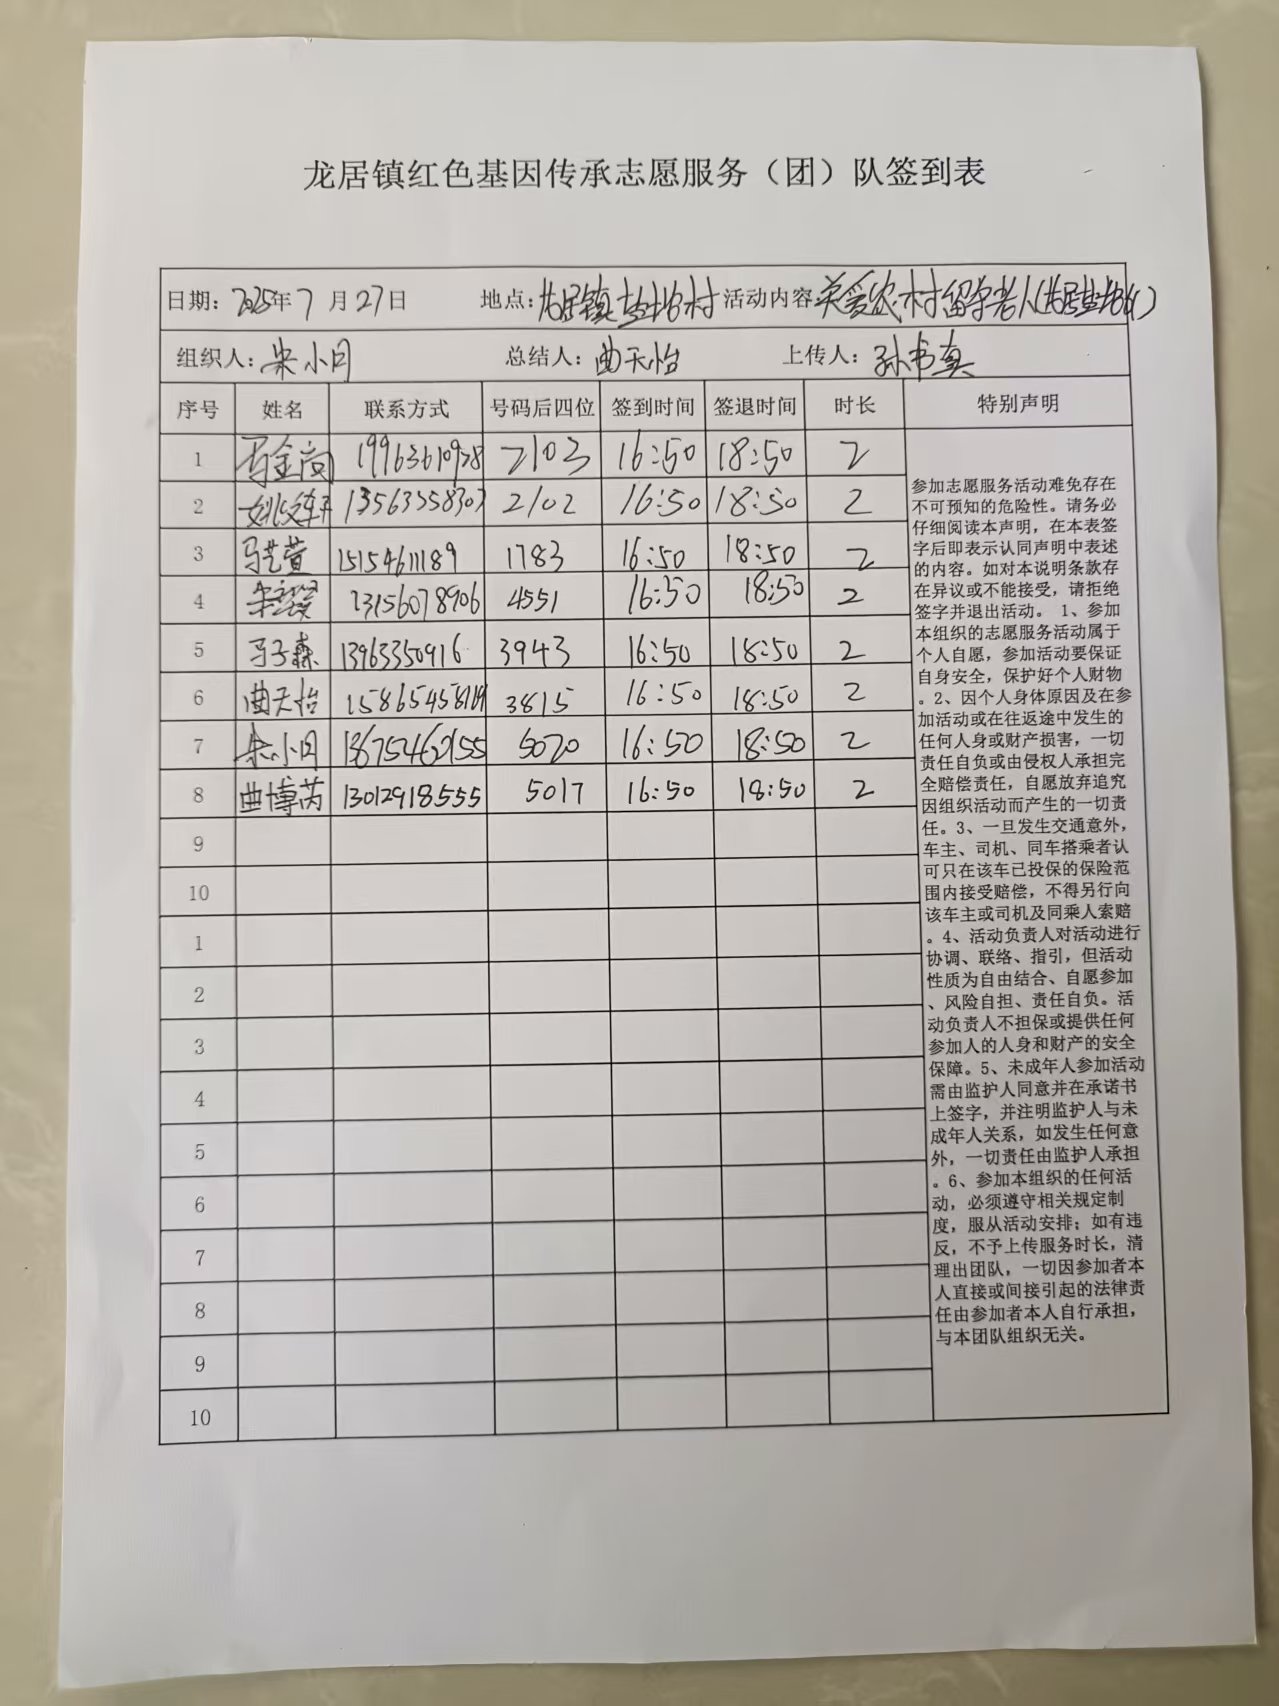 龙居镇红色基因传承志愿服务（团）队签到表
日期：2025年7月27日 地点：龙居镇盐坨村 活动内容 关爱农村留守老人
组织人：宋小月 总结人：曲天怡 上传人：孙书真
序号 姓名 联系方式 号码后四位 签到时间 签退时间 时长 特别声明
1 2103 16:50 18:50 2
2 13563358303 2102 16:50 18:50 2
3 马艺萱 15154611189 1783 16:50 18:50 2
4 13156078906 4551 16:50 18:50 2
5 马子森 13963350916 3943 16:50 18:50 2
6 曲天怡 3815 16:50 18:50 2
7 宋小月 5020 16:50 18:50 2
8 曲博芮 13012918555 5017 16:50 18:50 2
9
10
1
2
3
4
5
6
7
8
9
10
参加志愿服务活动难免存在
不可预知的危险性。请务必
仔细阅读本声明，在本表签
字后即表示认同声明中表述
的内容。如对本说明条款存
在异议或不能接受，请拒绝
签字并退出活动。 1、参加
本组织的志愿服务活动属于
个人自愿，参加活动要保证
自身安全，保护好个人财物
。2、因个人身体原因及在参
加活动或在往返途中发生的
任何人身或财产损害，一切
责任自负或由侵权人承担完
全赔偿责任，自愿放弃追究
因组织活动而产生的一切责
任。3、一旦发生交通意外，
车主、司机、同车搭乘者认
可只在该车已投保的保险范
围内接受赔偿，不得另行向
该车主或司机及同乘人索赔
。4、活动负责人对活动进行
协调、联络、指引，但活动
性质为自由结合、自愿参加
、风险自担、责任自负。活
动负责人不担保或提供任何
参加人的人身和财产的安全
保障。5、未成年人参加活动
需由监护人同意并在承诺书
上签字，并注明监护人与未
成年人关系，如发生任何意
外，一切责任由监护人承担
。6、参加本组织的任何活
动，必须遵守相关规定制
度，服从活动安排；如有违
反，不予上传服务时长，清
理出团队，一切因参加者本
人直接或间接引起的法律责
任由参加者本人自行承担，
与本团队组织无关。